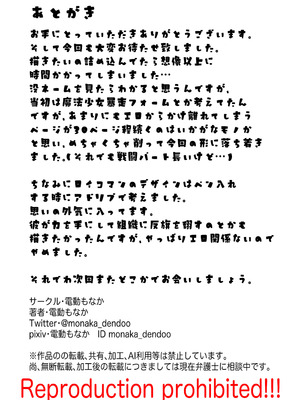 あとがき
お手にとっていただきありがとうございます。
そして今回も大変お待たせ致しました。
描きたいの詰め込んでたら想像以上に
時間かかってしまいました…
没ネームを見たらわかると思うんですが、
当初は魔法少女暴走フォームとか考えてたん
ですが、あまりにもエロからかけ離れてしまう
ページが30ページ程続くのはいかがなモノか
と思い、めちゃくちゃ削って今回の形に落ち着き
ました。(それでも戦闘パート長いけど…)
ちなみにロイコマンのデザインはペン入れ
する時にアドリブで考えました。
思いの外気に入ってます。
彼が力を手にして組織に反旗を翻すのとかも
描きたかったんですが、やっぱりエロ関係ないので
やめました。
それでわ次回またどこかでお会いしましょう。
サークル・電動もなか
著者・電動もなか
Twitter・@monaka_dendoo
pixiv・電動もなか ID monaka_dendoo
※作品のの転載、共有、加工、AI利用等は禁止しています。
尚、無断転載、加工後の転載につきましては現在弁護士に相談中です。
Reproduction prohibited!!!